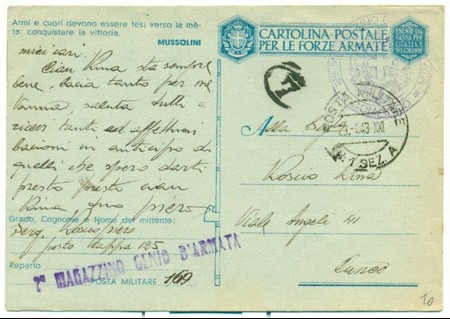 Armi e cuori devono essere tesi verso la mè-
ta: conquistare la vittoria.
MUSSOLINI
miei cari.
Ciau Rina sta sempre
bene, bacia tanto per me
Anna, saluta tutti e
ricevi tanti ed affettuosi
bacioni in anticipo di
quelli che spero darti
presto presto ciau
Rina, tuo piero
Grado, Cognome e Nome del mittente:
Serg. piero
posta 125
Reparto
2° MAGAZZINO GENIO D'ARMATA
POSTA MILITARE 169
CARTOLINA POSTALE
PER LE FORZE ARMATE
ESENTE DA
TASSA PER
L'ITALIA
POSTA MILITARE
43 XXI
N. 1 SEZ A
Alla
Rina
Viale Angeli 41
Cuneo
10